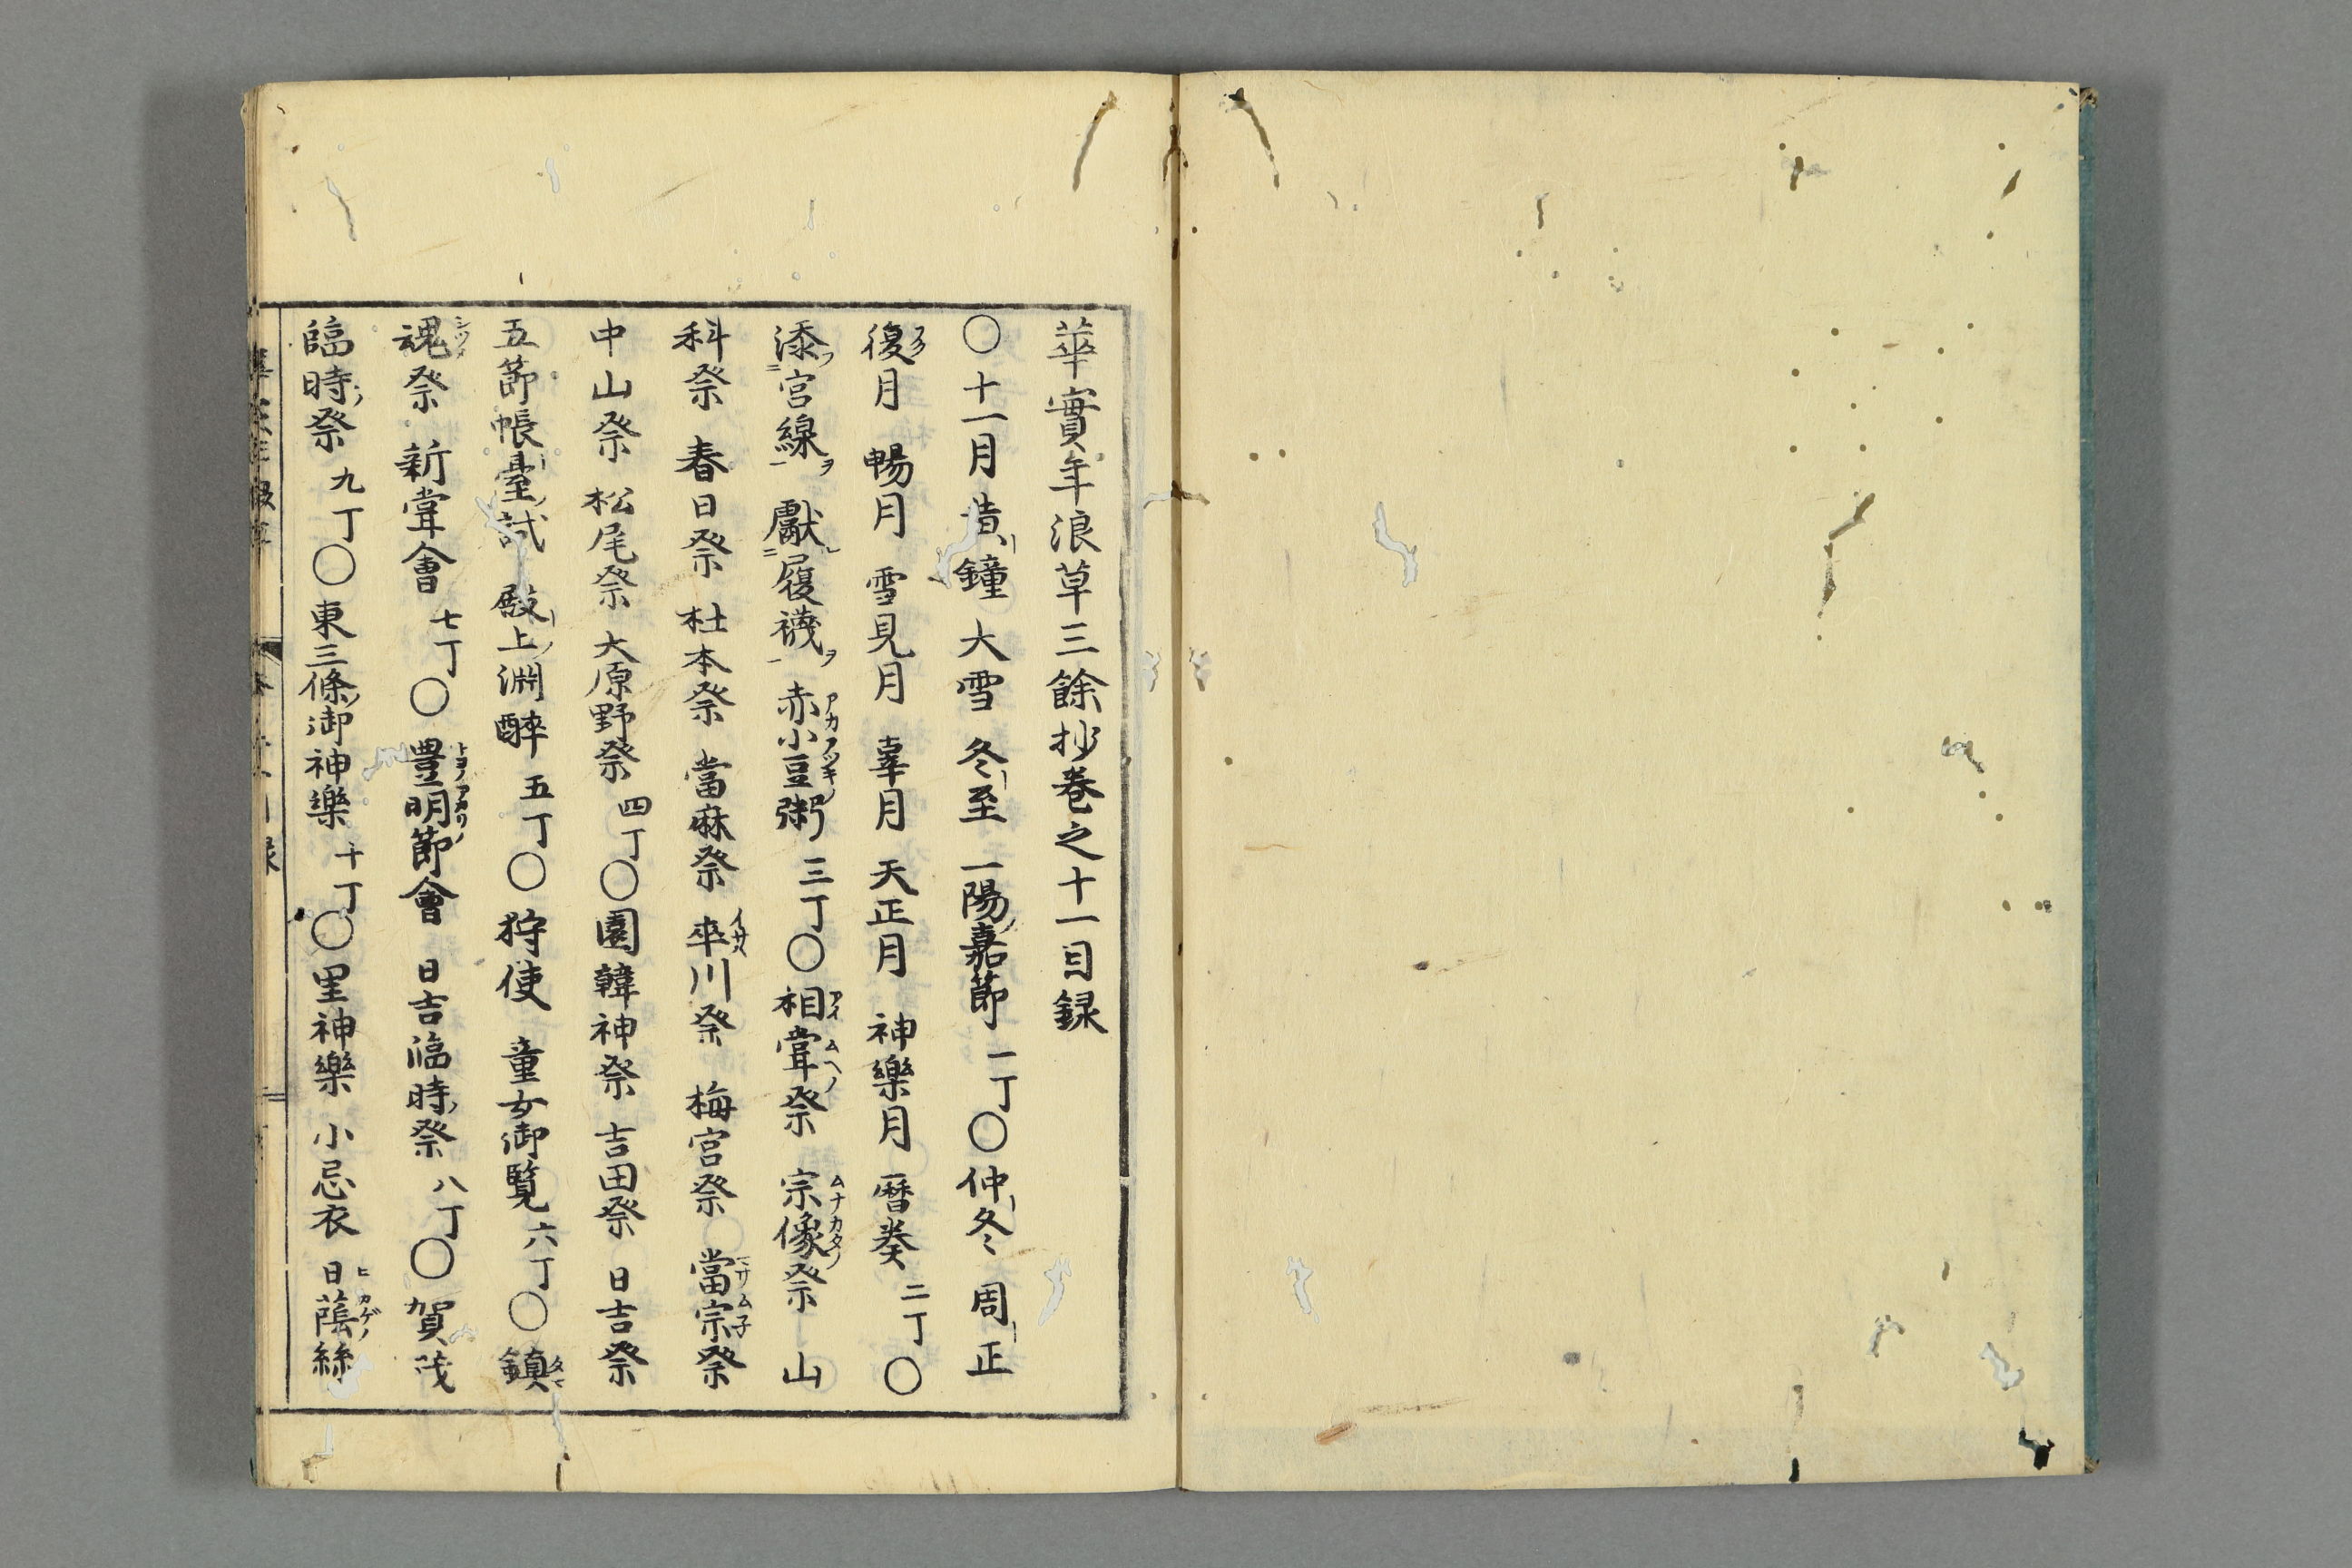 華實年浪草三餘抄巻之十一目録
〇十一月 黄鐘 大雪 冬至 一陽嘉節 一丁〇仲冬 周正
復月 暢月 雪見月 辜月 天正月 神樂月 暦奏 二丁〇
添宮線 獻履襪 赤小豆粥 三丁〇相嘗祭 宗像祭 山
科祭 春日祭 杜本祭 當麻祭 率川祭 梅宮祭 當宗祭
中山祭 松尾祭 大原野祭 四丁〇園韓神祭 吉田祭 日吉祭
五節帳臺試 殿上淵醉 五丁〇狩使 童女御覧 六丁〇鎮
魂祭 新嘗會 七丁〇豊明節會 日吉臨時祭 八丁〇賀茂
臨時祭 九丁〇東三條御神樂 十丁〇里神樂 小忌衣 日蔭絲